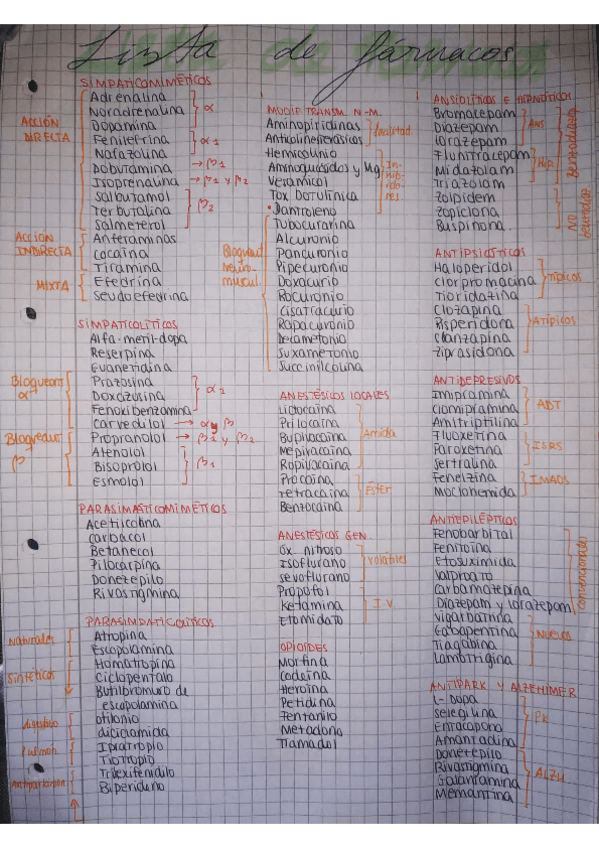 Lista de fármacos
SIMPATICOMIMÉTICOS
ACCIÓN DIRECTA
Adrenalina
Noradrenalina
Dopamina
α
Fenilefrina
Nafazolina
α1
Dobutamina → β1
Isoprenalina → β1 y β2
Salbutamol
Terbutalina
Salmeterol
β2
ACCIÓN INDIRECTA
Anfetaminas
Cocaína
Tiramina
MIXTA
Efedrina
Seudoefedrina
SIMPATICOLÍTICOS
Alfa-metil-dopa
Reserpina
Guanetidina
Bloqueant α
Prazosina
Doxazosina
Fenoxibenzamina
Carvedilol → α y β
Bloqueant β
Propranolol → β1 y β2
Atenolol
Bisoprolol
Esmolol
β1
PARASIMPÁTICOMIMÉTICOS
Acetilcolina
Carbacol
Betanecol
Pilocarpina
Donetepilo
Rivastigmina
PARASIMPATICOLÍTICOS
Naturales
Atropina
Escopolamina
Sintéticos
Homatropina
Ciclopentalo
Butilbromuro de
escopolamina
digestivo
otilonio
diciclamida
Pulmon
Ipratropio
Tiotropio
Antiparkinson
Trilexifenidilo
Biperideno
MODIF TRANSM. N-M.
Aminopiridinas
Anticolinesterásicos
facilitad.
Hemicolinio
Aminoglucósidos y Mg
Veramicol
Tox botulínica
• Dantroleno
Inhibidores
Bloquead neuromuscul.
Tubocurarina
Alcuronio
Pancuronio
Pipecuronio
Doxacurio
Rocuronio
Cisatracurio
Rapacuronio
Decametonio
Suxametonio
Succinilcolina
ANESTÉSICOS LOCALES
Lidocaína
Prilocaína
Bupivocaína
Mepivacaína
Ropivacaína
Amida
Procaína
Tetracaína
Benzocaína
Éster
ANESTÉSICOS GEN.
Óx. nitroso
Isoflurano
Sevoflurano
Volátiles
Propofol
Ketamina
Etomidato
I.V.
OPIOIDES
Morfina
Codeína
Heroína
Petidina
Fentanilo
Metadona
Tramadol
ANSIOLÍTICOS E HIPNÓTICOS
Bromacepam
Diazepam
Lorazepam
Ans
Flunitracepam
Midazolam
Triazolam
Hip.
Zolpidem
Zopiclona
Buspinona
NO
ANTIPSICÓTICOS
Haloperidol
Clorpromacina
Tioridazina
Típicos
Clozapina
Risperidona
Olanzapina
Ziprasidona
Atípicos
ANTIDEPRESIVOS
Imipramina
Clomipramina
Amitriptilina
ADT
Fluoxetina
Paroxetina
Sertralina
ISRS
Fenelzina
Moclobemida
IMAOS
ANTIEPILÉPTICOS
Fenobarbital
Fenitoína
Etosuximida
Valproato
Carbamazepina
Diazepam y lorazepam
convencionales
Vigarbatrina
Gabapentina
Tiagabina
Lamotrigina
Nuevos
ANTIPARK Y ALZEHIMER
L-Dopa
Selegilina
Entacapona
Amantadina
PK
Donetepilo
Rivastigmina
Galantamina
Memantina
ALZH